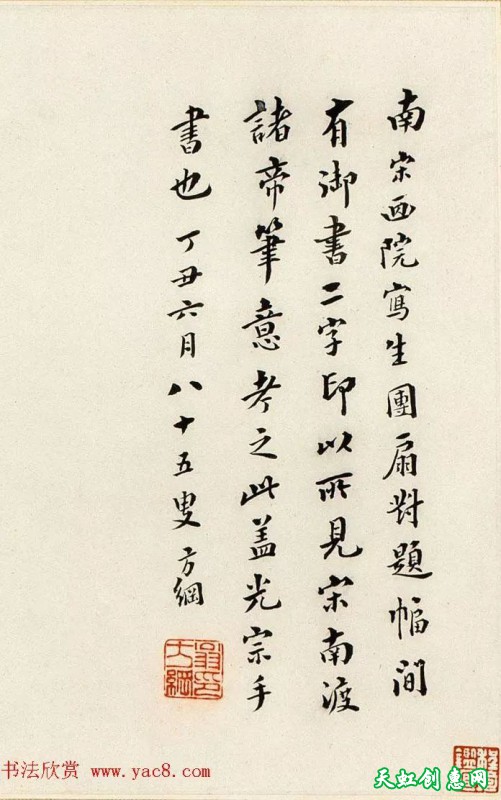 南宋画院寫生團扇對題幅間
有御書二字印以所見宋南渡
諸帝筆意考之此盖光宗手
書也 丁丑六月八十五叟方綱
翁方綱印
书法欣赏 www.yac8.com
天虹创惠网